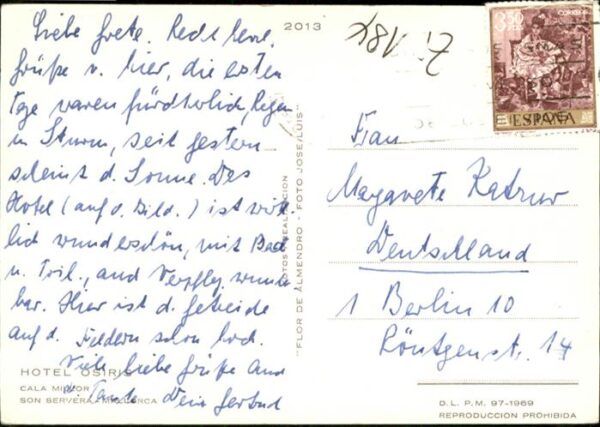 2013
Liebe Grete, Recht herzl.
Grüße v. hier, die ersten
Tage waren fürchterlich, Regen
u. Sturm, seit gestern
scheint d. Sonne. Das
Hotel (auf d. Bild.) ist wirk-
lich wunderschön, mit Bad
u. Toil., auch Verpfleg. wunder
bar. Hier ist d. Getreide
auf d. Feldern schon hoch.
Viele liebe Grüße auch
Dein
HOTEL OSIRIS
CALA MILLOR
SON SERVERA - MALLORCA
"FLOR DE ALMENDRO" - FOTO JOSE LUIS"
CORREOS
ESPAÑA
Frau
Margarete
Deutschland
1 Berlin 10
Röntgenstr. 14
D. L. P. M. 97-1969
REPRODUCCION PROHIBIDA